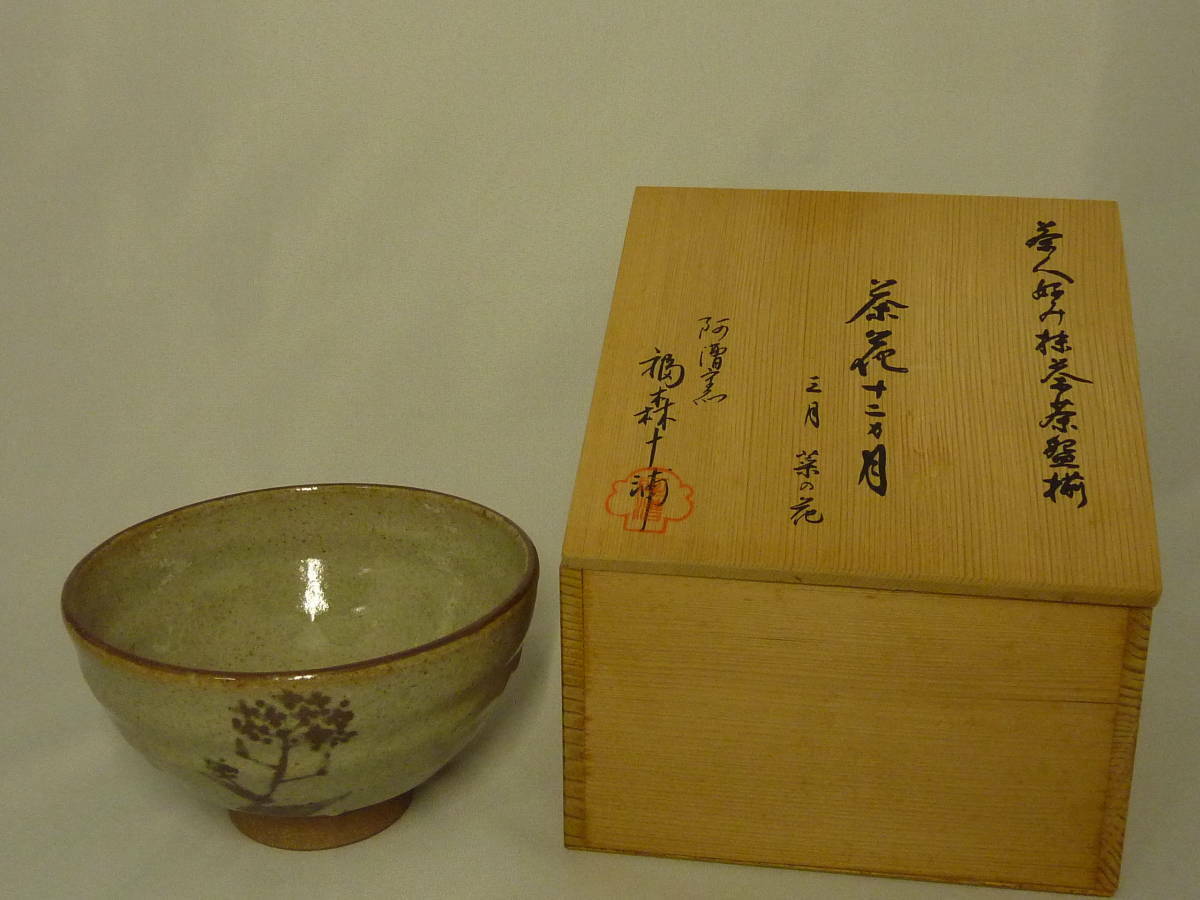 茶人好み抹茶茶盌揃
茶花十二ヵ月
三月 菜の花
阿漕窯
福森十補